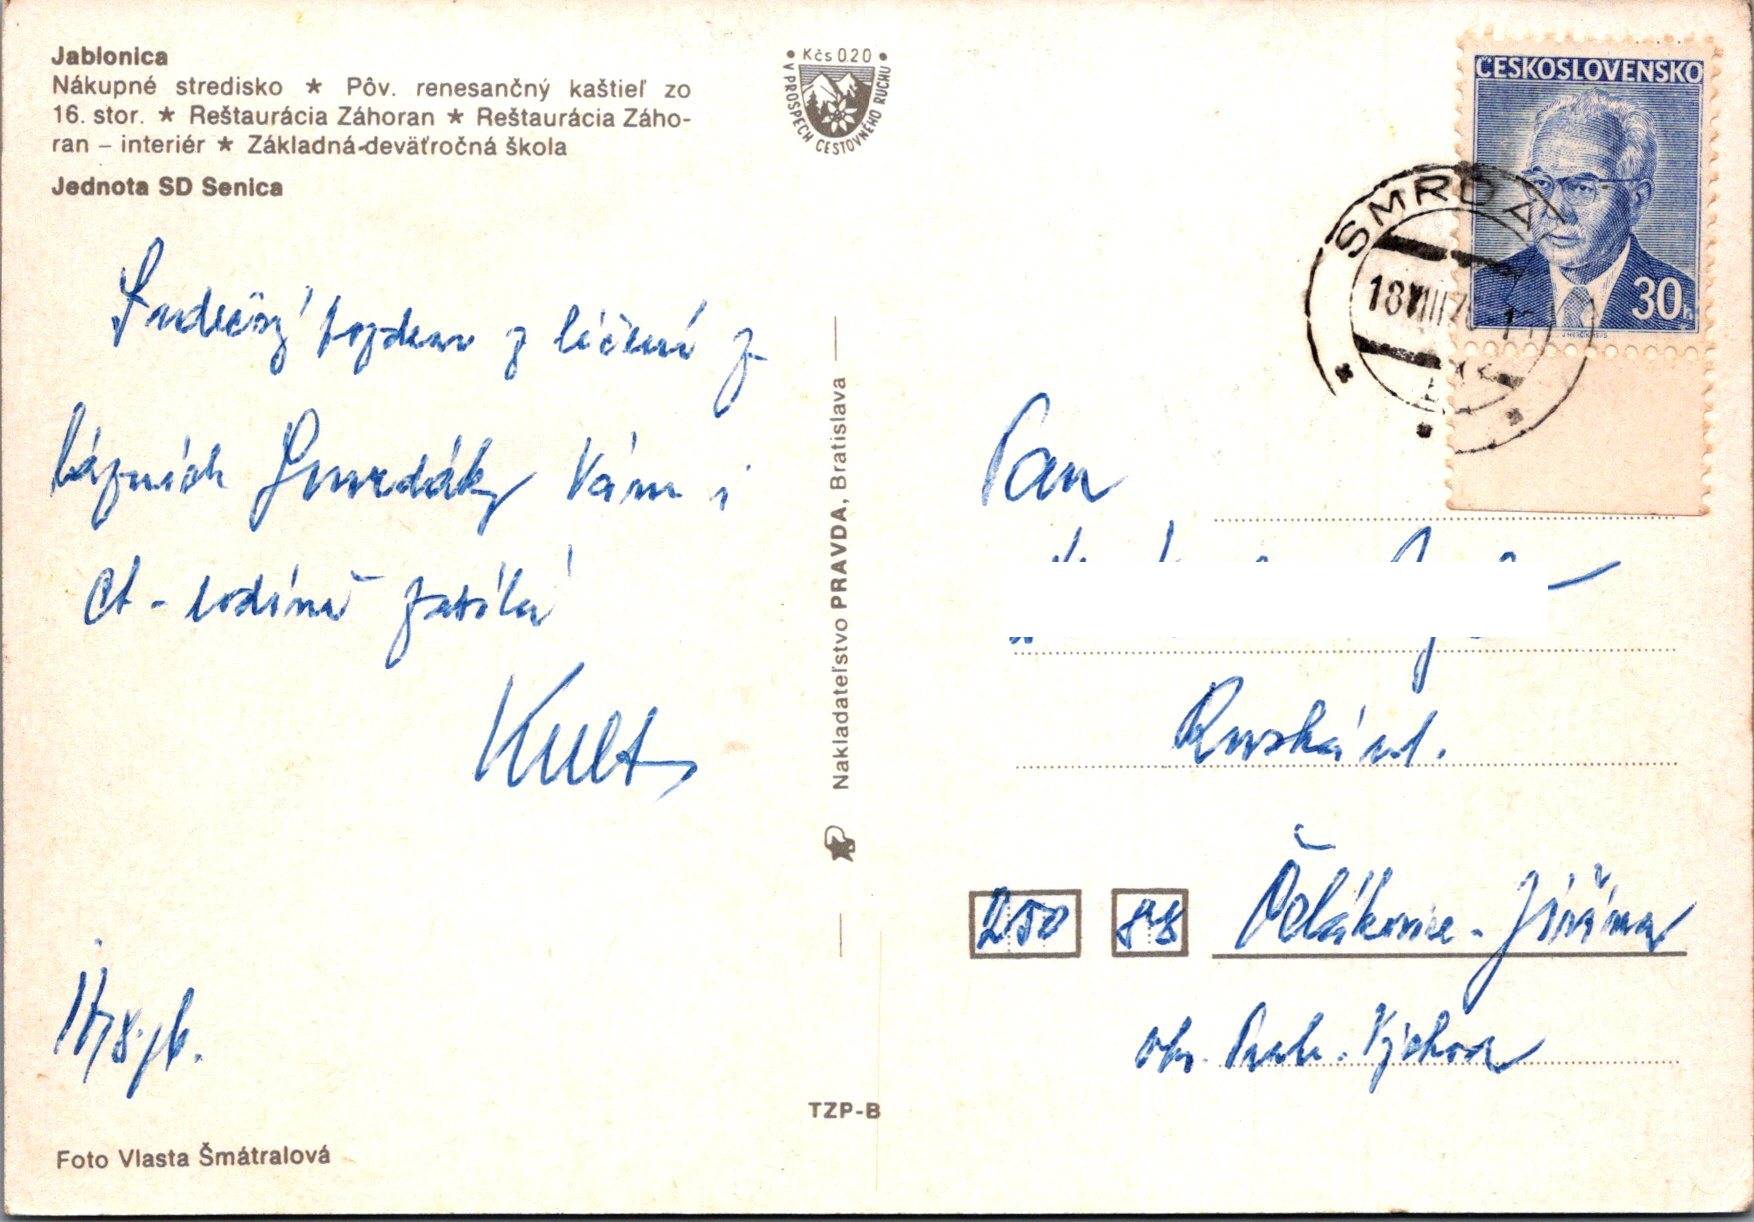 Jablonica
Nákupné stredisko ★ Pôv. renesančný kaštieľ zo
16. stor. ★ Reštaurácia Záhoran ★ Reštaurácia Záho-
ran – interiér ★ Základná deväťročná škola
Jednota SD Senica
Srdečný pozdrav z léčení z
lázních Smrdáky Vám i
ct. rodině zasílá
Kult
17/8.76.
Foto Vlasta Šmátralová
• Kčs 0.20 •
V PROSPECH CESTOVNÉHO RUCHU
Nakladateľstvo PRAVDA, Bratislava
TZP-B
ČESKOSLOVENSKO
30h
SMRDÁ
18 VIII 76
Pan
Ruská ul.
250 88 Čelákovice - Jiřina
okr. Praha. Východ